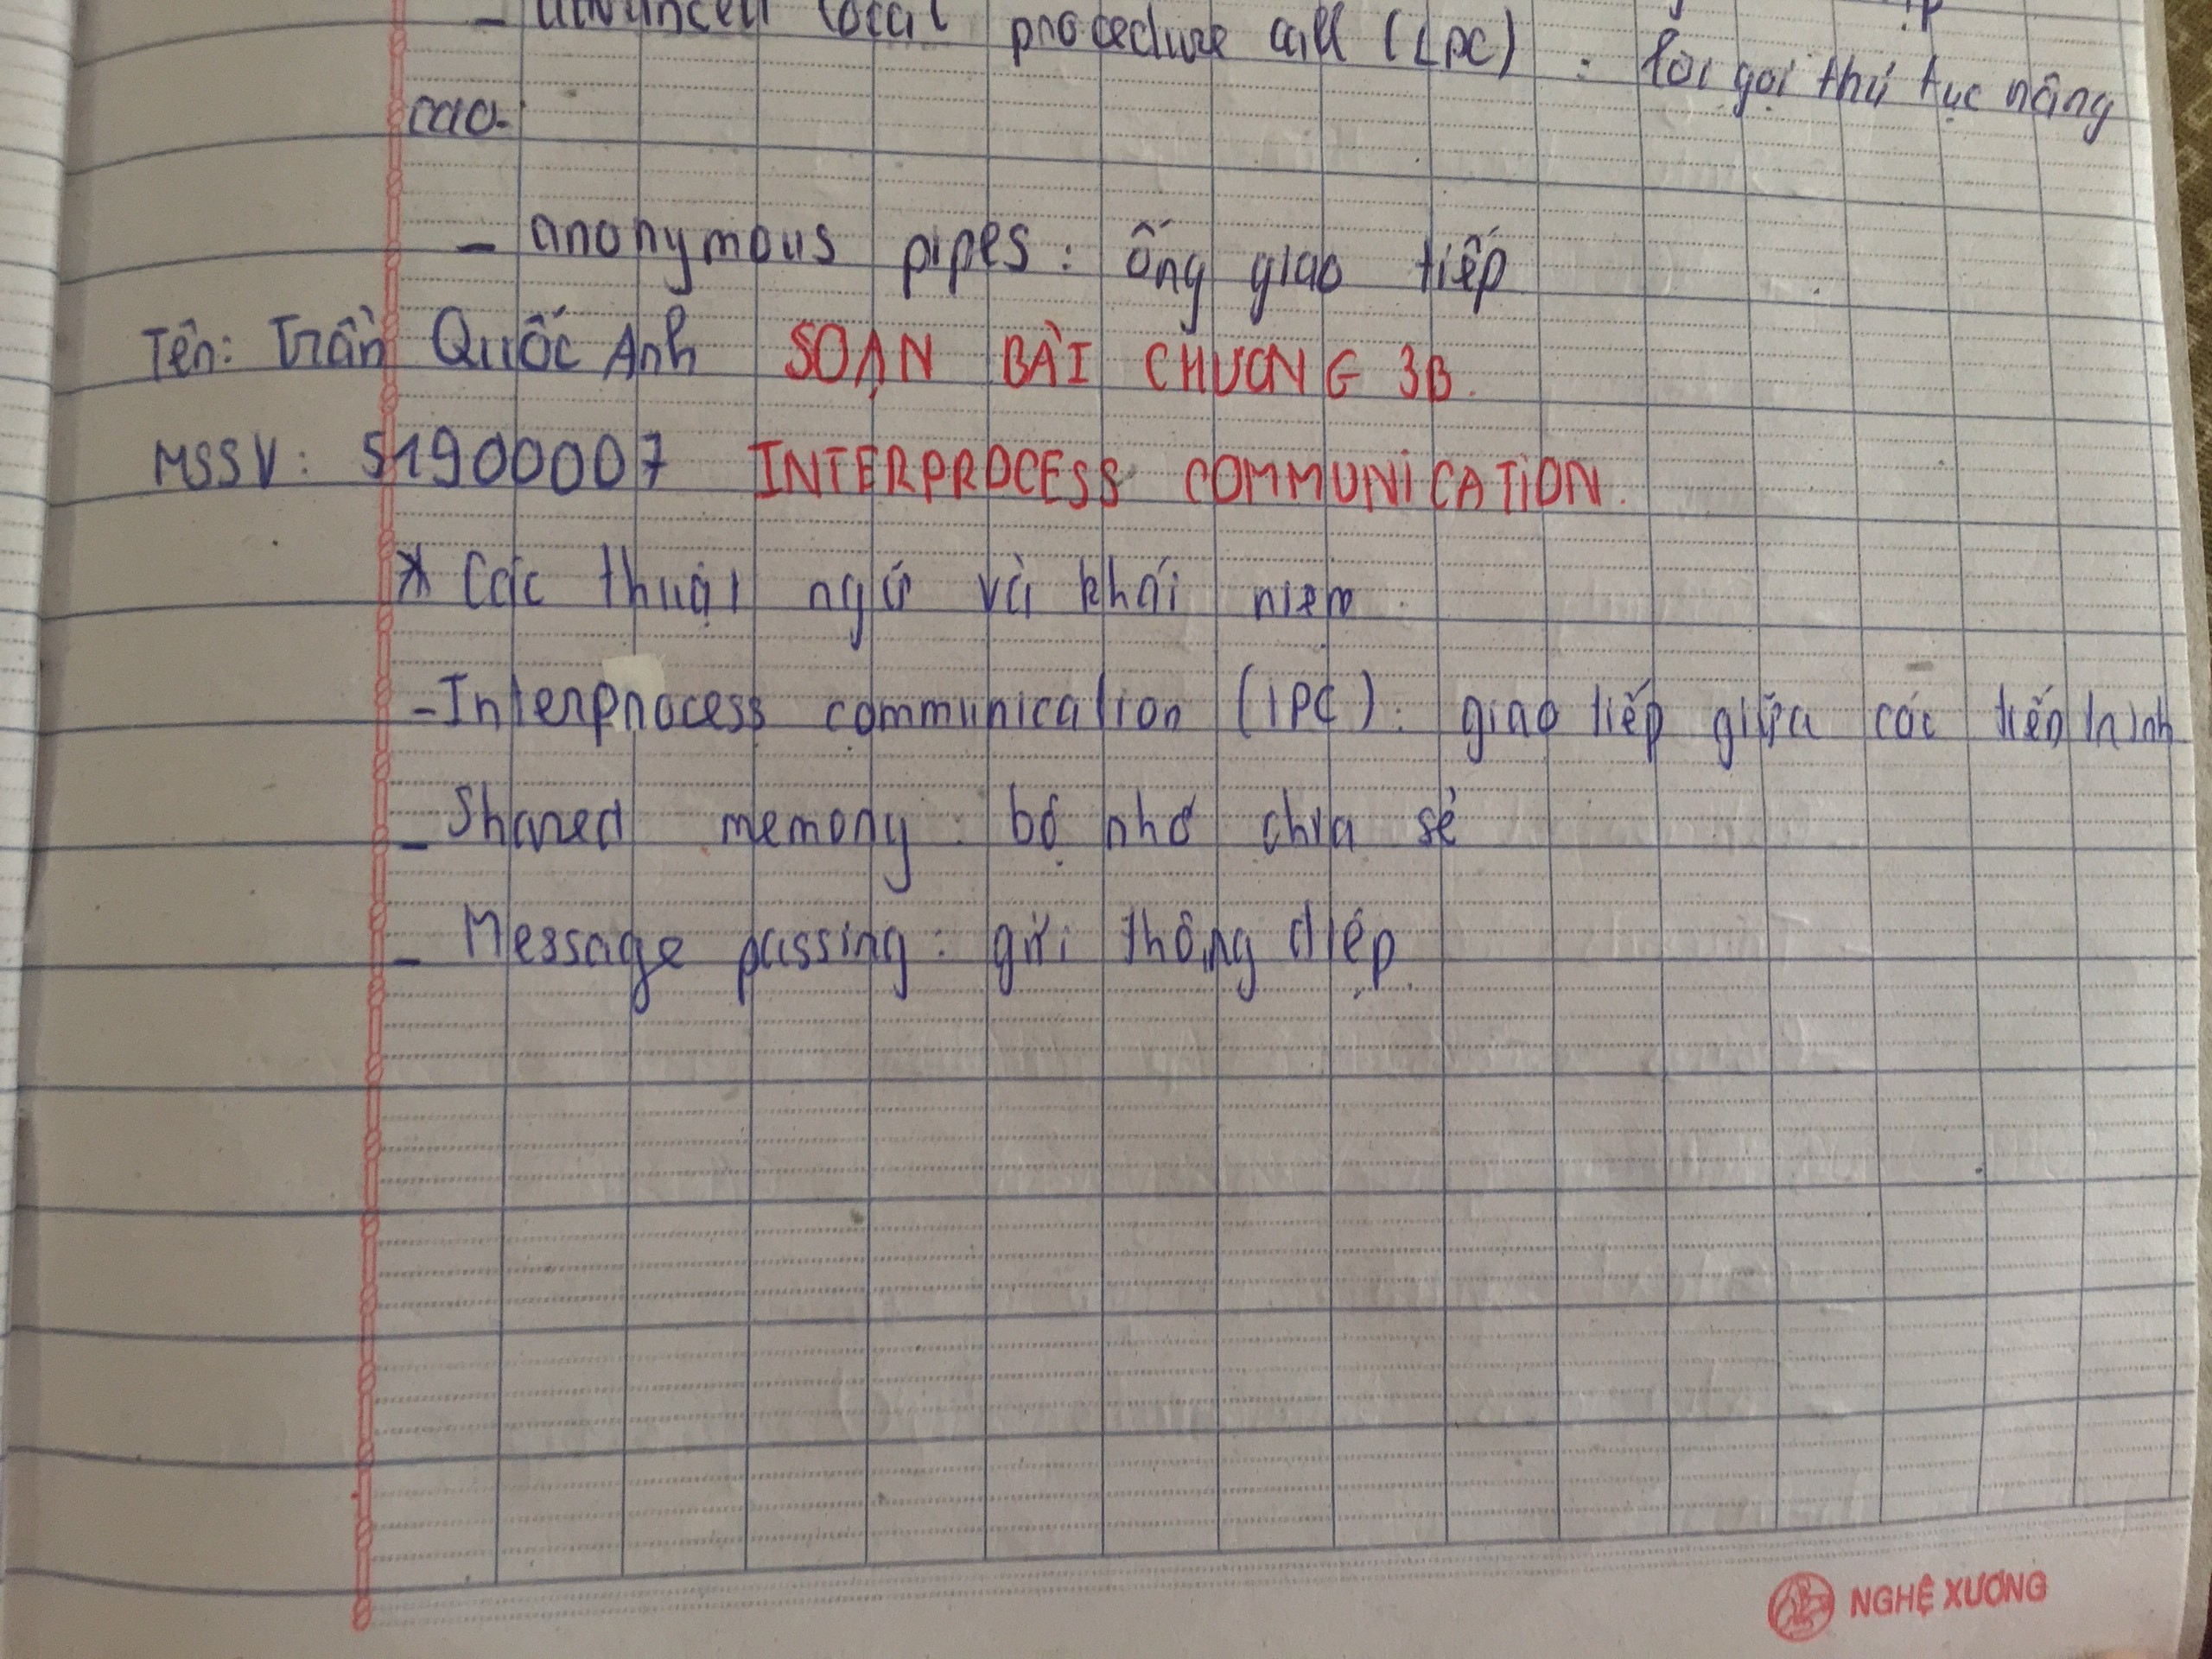 - advanced local procedure call (LPC) : lời gọi thủ tục nâng
cao.
- anonymous pipes: ống giao tiếp
Tên: Trần Quốc Anh SOẠN BÀI CHƯƠNG 3B.
MSSV: 51900007 INTERPROCESS COMMUNICATION.
* Các thuật ngữ và khái niệm.
- Interprocess communication (IPC): giao tiếp giữa các tiến trình
- Shared memory: bộ nhớ chia sẻ
- Message passing: gửi thông điệp.
NGHỆ XƯƠNG